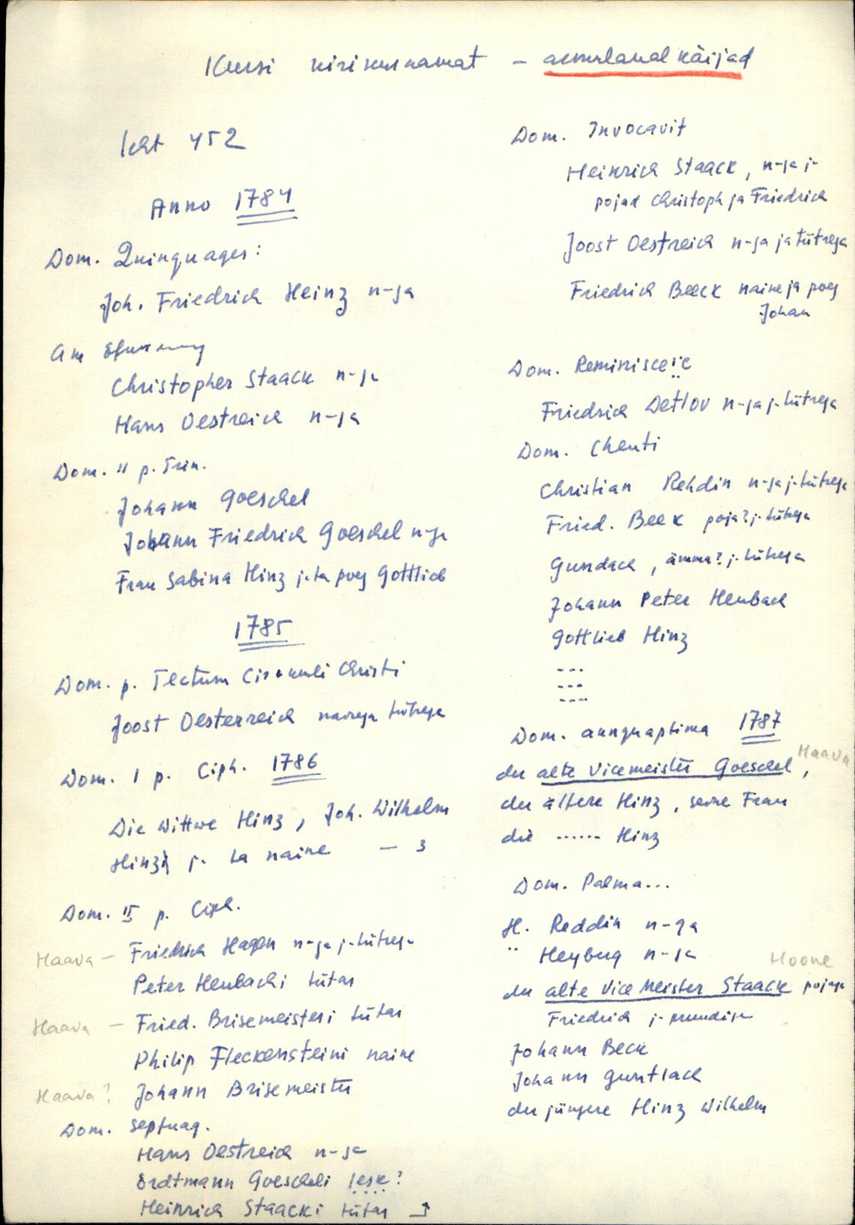 Kursi kirikuraamat – armulaual käijad
lht 452
Anno 1784
Dom. Quinquages:
Joh. Friedrich Heinz n-ga
Am
Christopher Staack n-ga
Hans Oestreich n-ga
Dom. 11 p. Trin.
Johann Goeschel
Johann Friedrich Goeschel n-ga
Frau Sabina Hinz j. ta poeg Gottlieb
1785
Dom. p. Festum Christi
Joost Oesterreich naisega tütrega
Dom. 1 p. Ciph. 1786
Die Wittwe Hinz, Joh. Wilhelm
Hinz j. ta naine – 3
Dom. II p. Ciph.
Haava – Friedrich Hagen n-ga j. tütrega
Peter Heubachi tütar
Haava – Fried. Brisemeisteri tütar
Philip Fleckensteini naine
Haava? Johann Brisemeister
Dom. Septuag.
Hans Oestreich n-ga
Erdtmann Goescheli lesk?
Heinrich Staacki tütar
Dom. Invocavit
Heinrich Staack, n-ga j.
pojad Christoph ja Friedrich
Joost Oestreich n-ga ja tütrega
Friedrich Beeck naine ja poeg
Johan
Dom. Reminisce
Friedrich Detlov n-ga j. tütrega
Dom.
Christian Rehdin n-ga j. tütrega
Fried. Beek poja? j. tütrega
Gundlach, ämma? j. tütrega
Johann Peter Heubach
Gottlieb Hinz
---
---
---
Dom. 1787
der alte Vicemeister Goeschel, Haava
der ältere Hinz, seine Frau
die ...... Hinz
Dom. Palma...
H. Reddin n-ga
" Heyberg n-ga
Hoone
der alte Vice Meister Staack pojaga
Friedrich j.
Johann Beck
Johann Guntlach
der jüngere Hinz Wilhelm